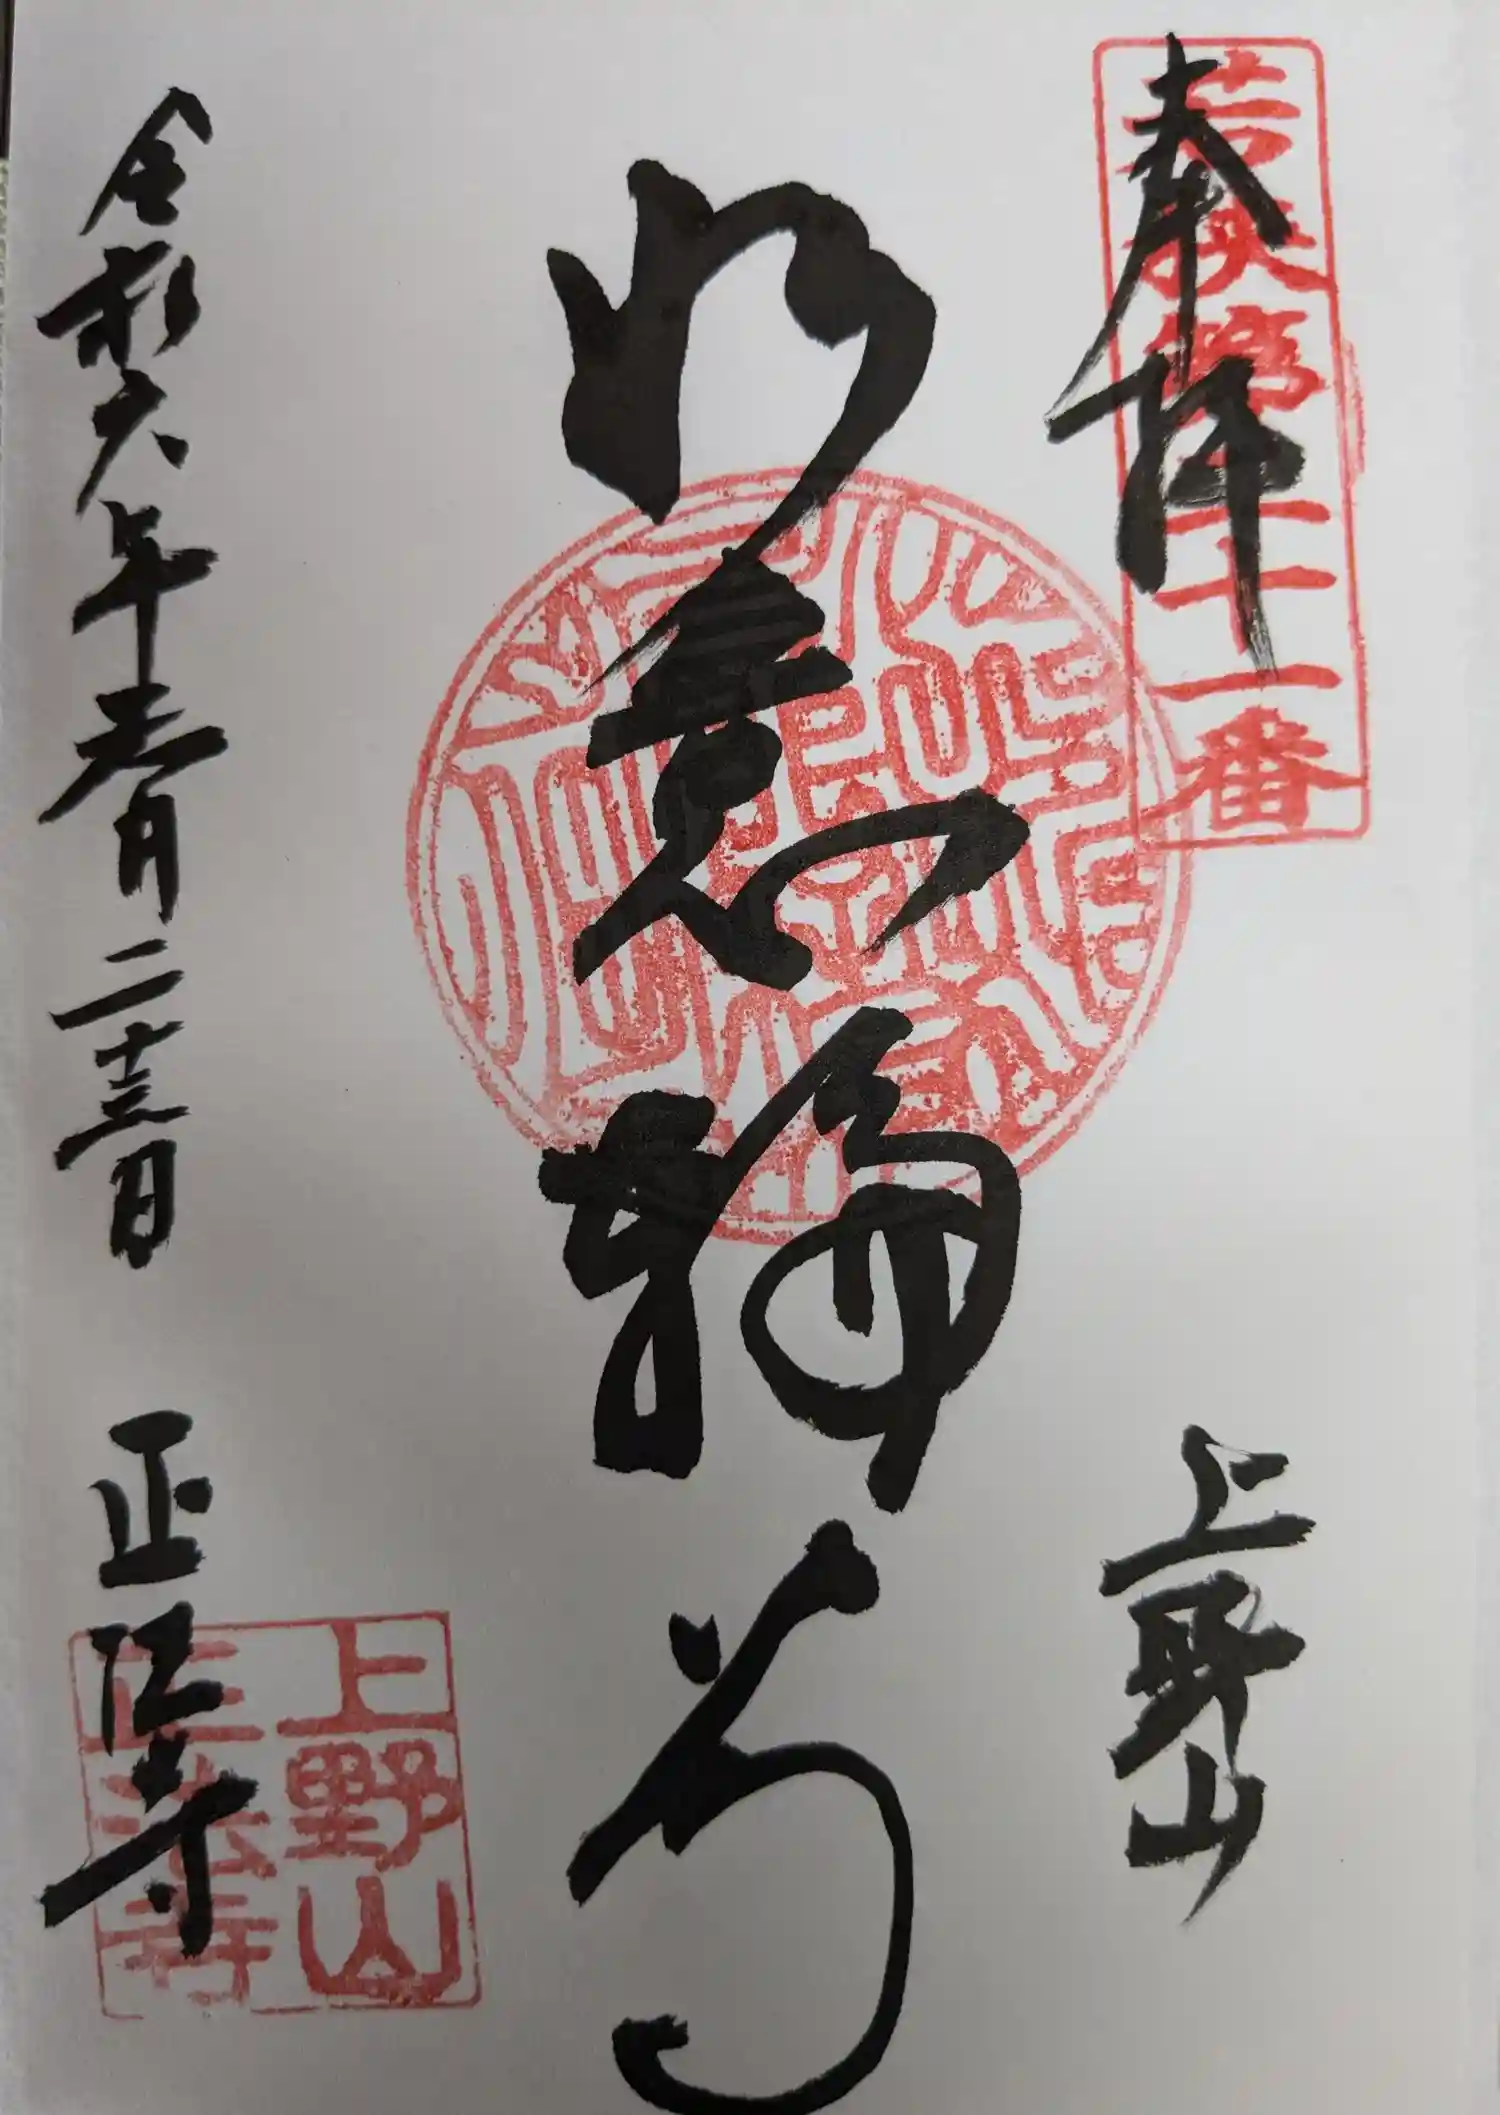 奉拝
若狭第二十一番
上野山
如意輪尊
令和六年壱月二十三日
正法寺
上野山
正法寺